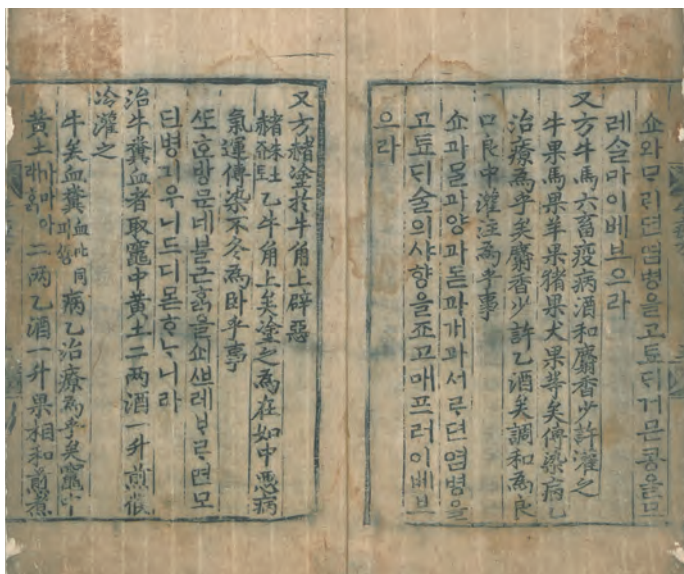 쇼와ᄆᆞ리뎐염병을고툐ᄃᆡ거믄콩을므
레ᄉᆞᆯ마이베브으라
又方牛馬六畜疫病酒和麝香少許灌之
牛果馬果羊果猪果犬果等矣傳染病乙
治療爲乎矣麝香少許乙酒矣調和爲良
口良中灌注爲乎事
쇼과ᄆᆞᆯ과양과돋과개과서르뎐염병을
고툐ᄃᆡ술의샤향을죠고매프러이베브
으라
又方赭塗於牛角上辟惡
赭朱土주토乙牛角上矣塗之爲在如中惡病
氣運傳染不冬爲臥乎事
ᄯᅩᄒᆞᆫ방문네블근ᄒᆞᆰ을쇼ᄲᅳᆯ레ᄇᆞᄅᆞ면모
딘병긔우니드디몯ᄒᆞᄂᆞ니라
治牛糞血者取竈中黃土二兩酒一升煎候
冷灌之
牛矣血糞血叱同피ᄯᅩᆼ病乙治療爲乎矣竈中
黃土가마아래ᄒᆞᆰ二兩乙酒一升果相和煎煮